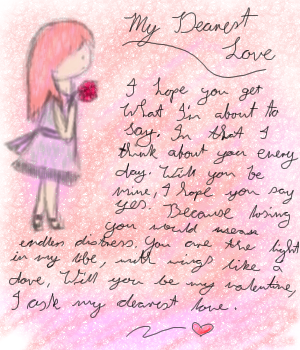 My Dearest
Love
I hope you get
What I'm about to
say, In that I
think about you every
day. Will you be
mine, I hope you say
yes. Because losing
you would mean
endless distress. You are the light
in my life, with wings like a
dove, Will you be my valentine,
I ask my dearest love.